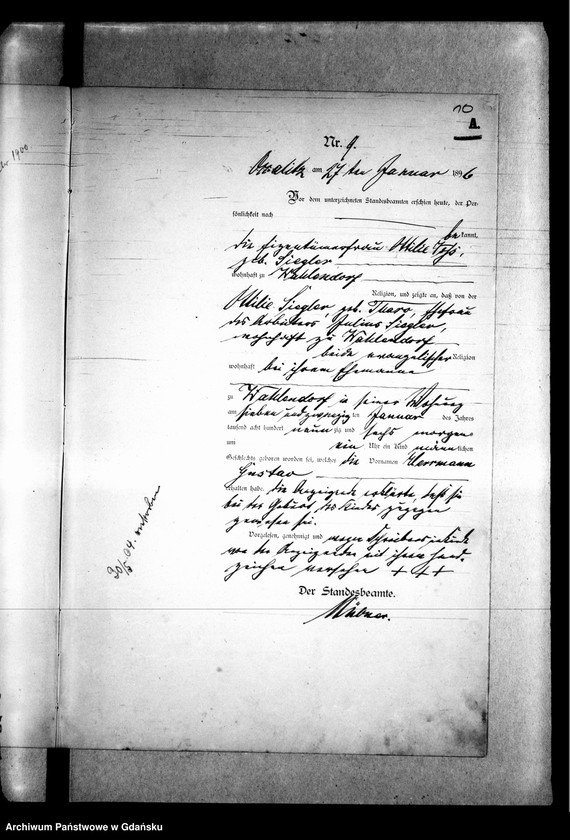 ber 1900
10
A.
Nr. 9.
am 27ten Januar 1896
Vor dem unterzeichneten Standesbeamten erschien heute, der Per-
sönlichkeit nach
bekannt,
die Eigentümerfrau Ottilie
geb. Siegler
wohnhaft zu Wahlendorf
Religion, und zeigte an, daß von der
Ottilie Siegler, geb. Ehefrau
des Arbeiters Julius Siegler,
wohnhaft zu Wahlendorf
beide evangelischer Religion
wohnhaft bei ihrem Ehemanne
zu Wahlendorf in seiner Wohnung
am sieben und zwanzig ten Januar des Jahres
tausend acht hundert neun zig und sechs morgens
um ein Uhr ein Kind männlichen
Geschlechts geboren worden sei, welches die Vornamen Herrmann
Gustav
erhalten habe. Die Anzeigende erklärte, daß sie
bei der Geburt des Kindes zugegen
gewesen sei.
Vorgelesen, genehmigt und wegen Schreibensunkunde
von der Anzeigenden mit ihrem Hand-
zeichen versehen + + +
Der Standesbeamte.
04. verstorben
Archiwum Państwowe w Gdańsku